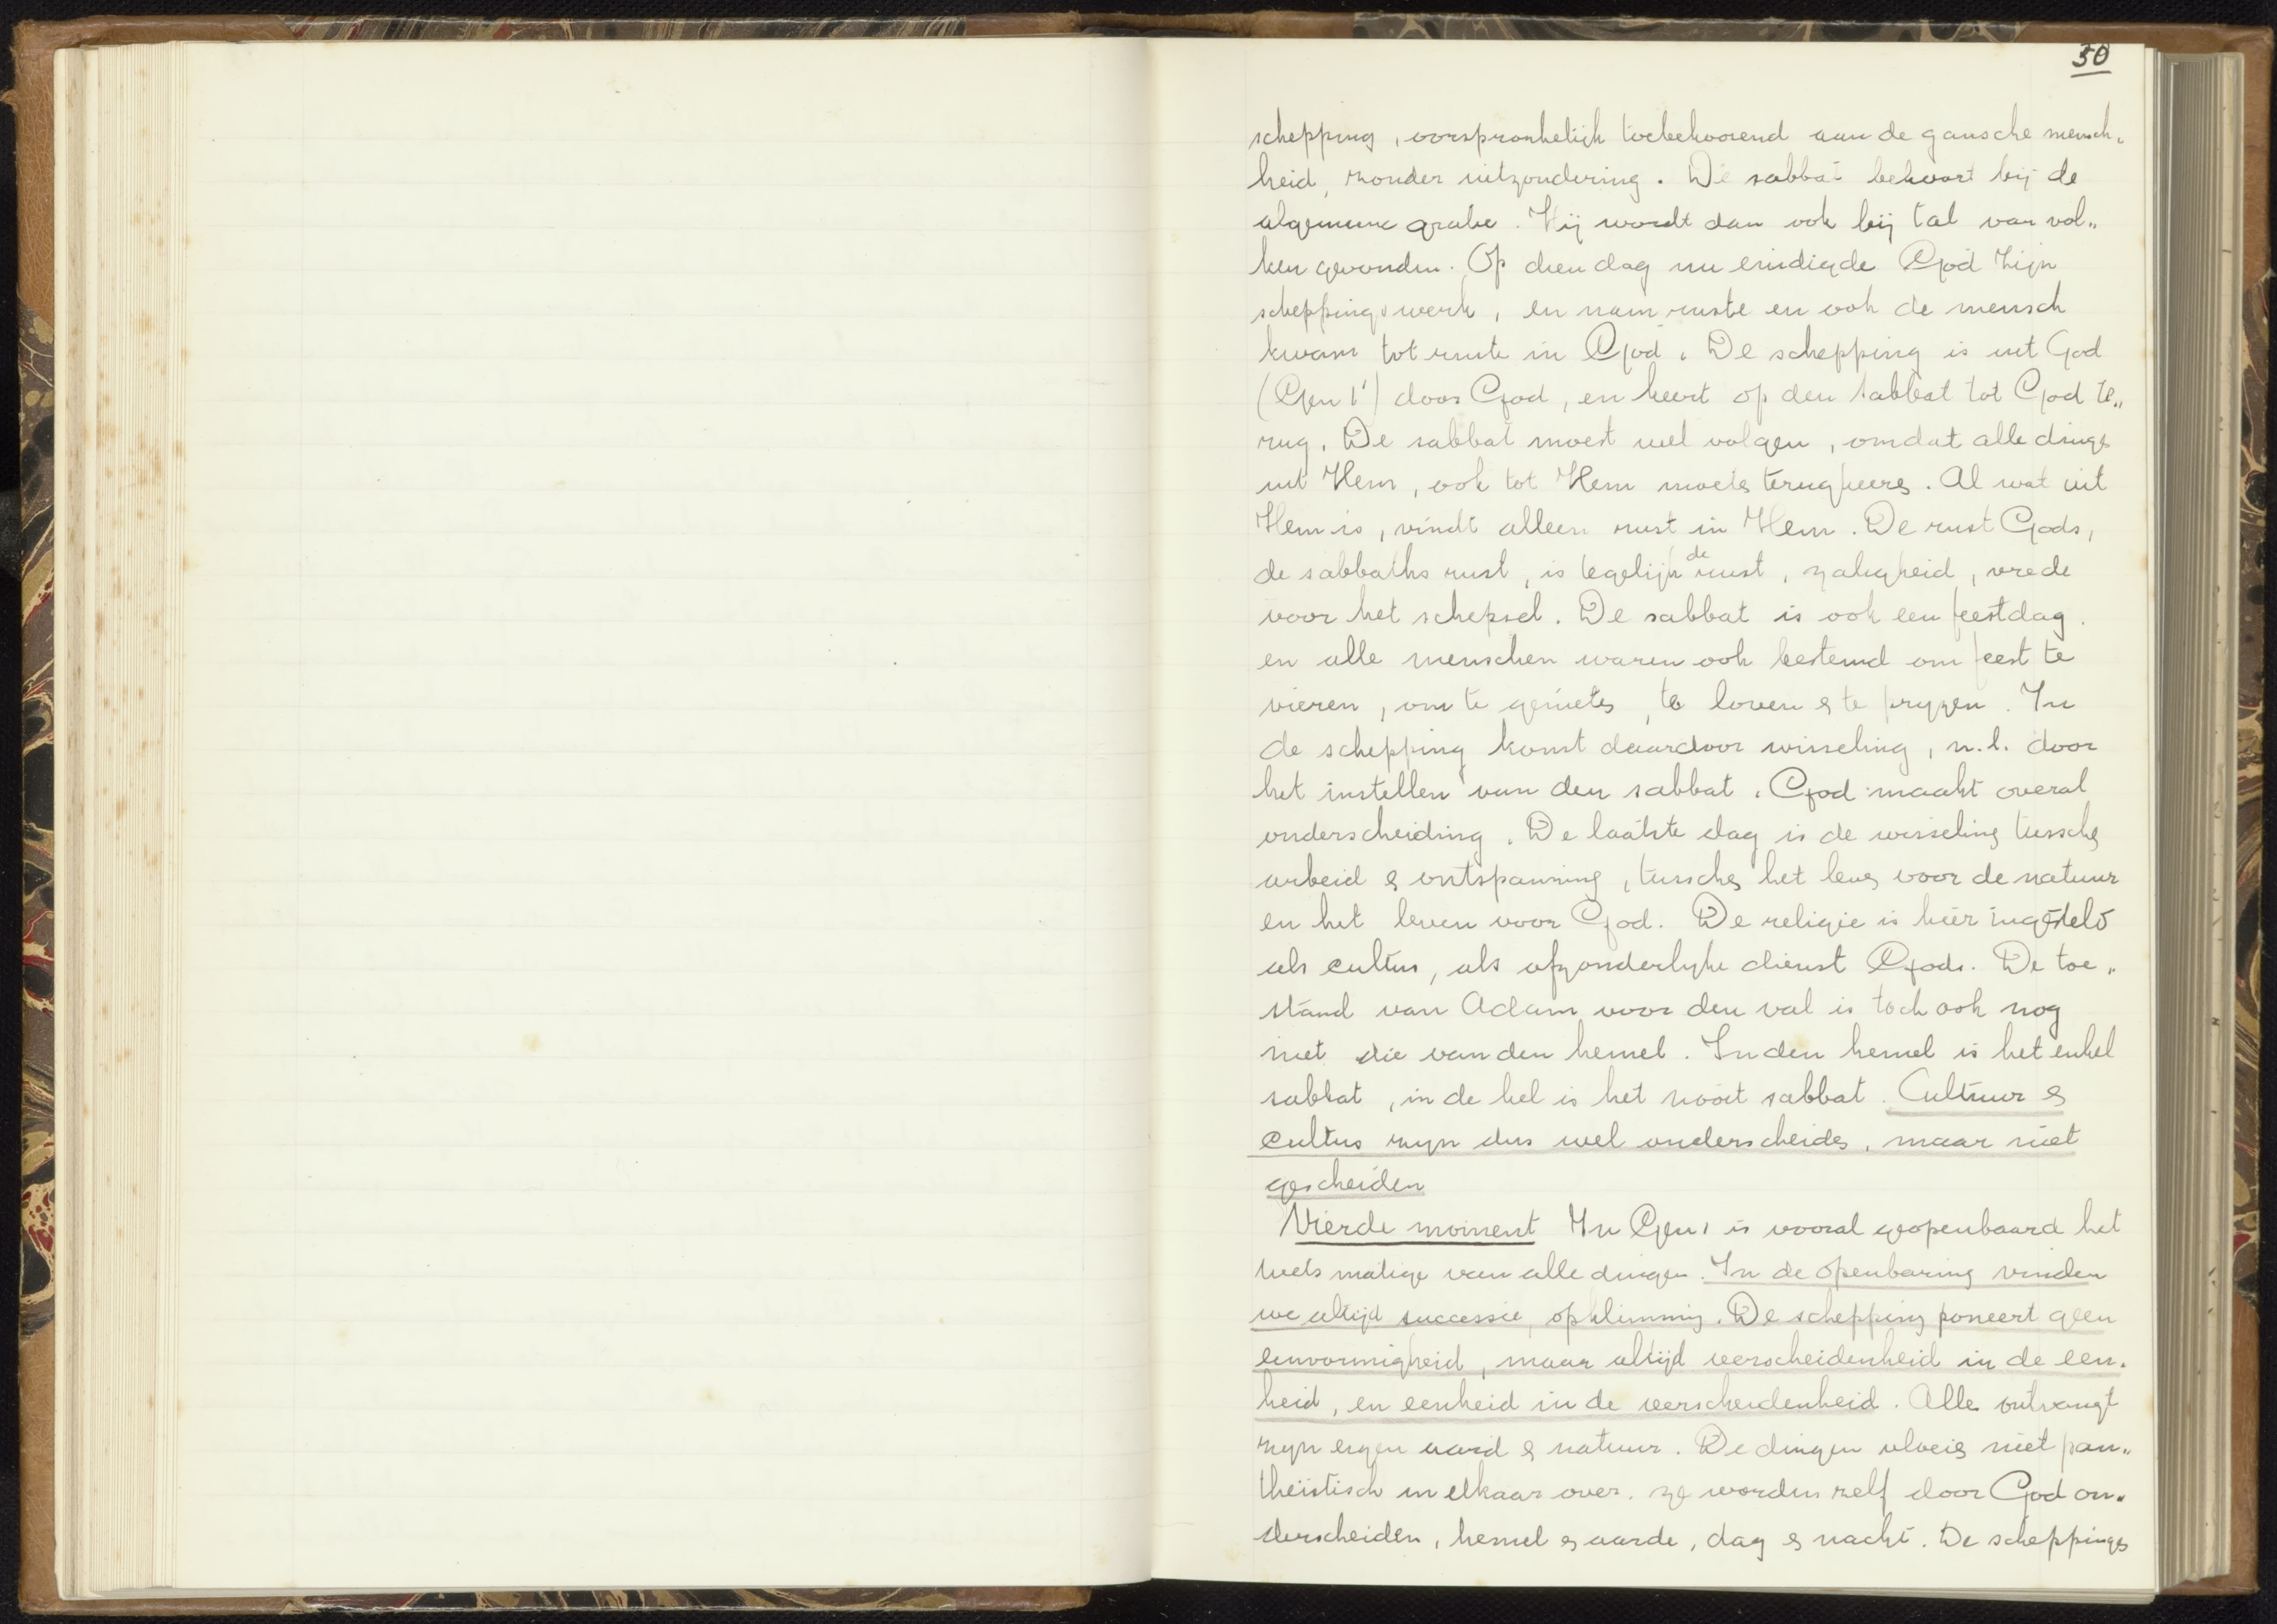 50
schepping, oorspronkelijk toebehoorend aan de gansche mensch„
heid, zonder uitzondering. De sabbat behoort bij de
algemeene gratie. Hij wordt dan ook bij tal van vol„
ken gevonden. Op dien dag nu eindigde God Zijn
scheppingswerk, en nam ruste en ook de mensch
kwam tot ruste in God. De schepping is uit God
(Gen 1¹) door God, en keert op den sabbat tot God te„
rug. De sabbat moest wel volgen, omdat alle dinge
uit Hem, ook tot Hem moete terugkeere. Al wat uit
Hem is, vindt alleen rust in Hem. De rust Gods,
de sabbaths rust, is tegelijk de rust, zaligheid, vrede
voor het schepsel. De sabbat is ook een feestdag.
en alle menschen waren ook bestemd om feest te
vieren, om te geniete, te loven & te pryzen. In
de schepping komt daardoor wisseling, n.l. door
het instellen van den sabbat. God maakt overal
onderscheiding. De laatste dag is de wisseling tussche
arbeid & ontspanning, tussche het leve voor de natuur
en het leven voor God. De religie is hier ingesteld
als cultus, als afzonderlyke dienst Gods. De toe„
stand van Adam voor den val is toch ook nog
niet die van den hemel. In den hemel is het enkel
sabbat, in de hel is het nooit sabbat. Cultuur &
cultus zyn dus wel onderscheide, maar niet
gescheiden
Vierde moment In Gen 1 is vooral geopenbaard het
wets matige van alle dingen. In de openbaring vinden
we altijd successie, opklimming. De schepping poneert geen
eenvormigheid, maar altijd verscheidenheid in de een„
heid, en eenheid in de verscheidenheid. Alles ontvangt
zyn eigen aard & natuur. De dingen vloeie niet pan„
theistisch in elkaar over. ze worden zelf door God on„
derscheiden, hemel & aarde, dag & nacht. De scheppings